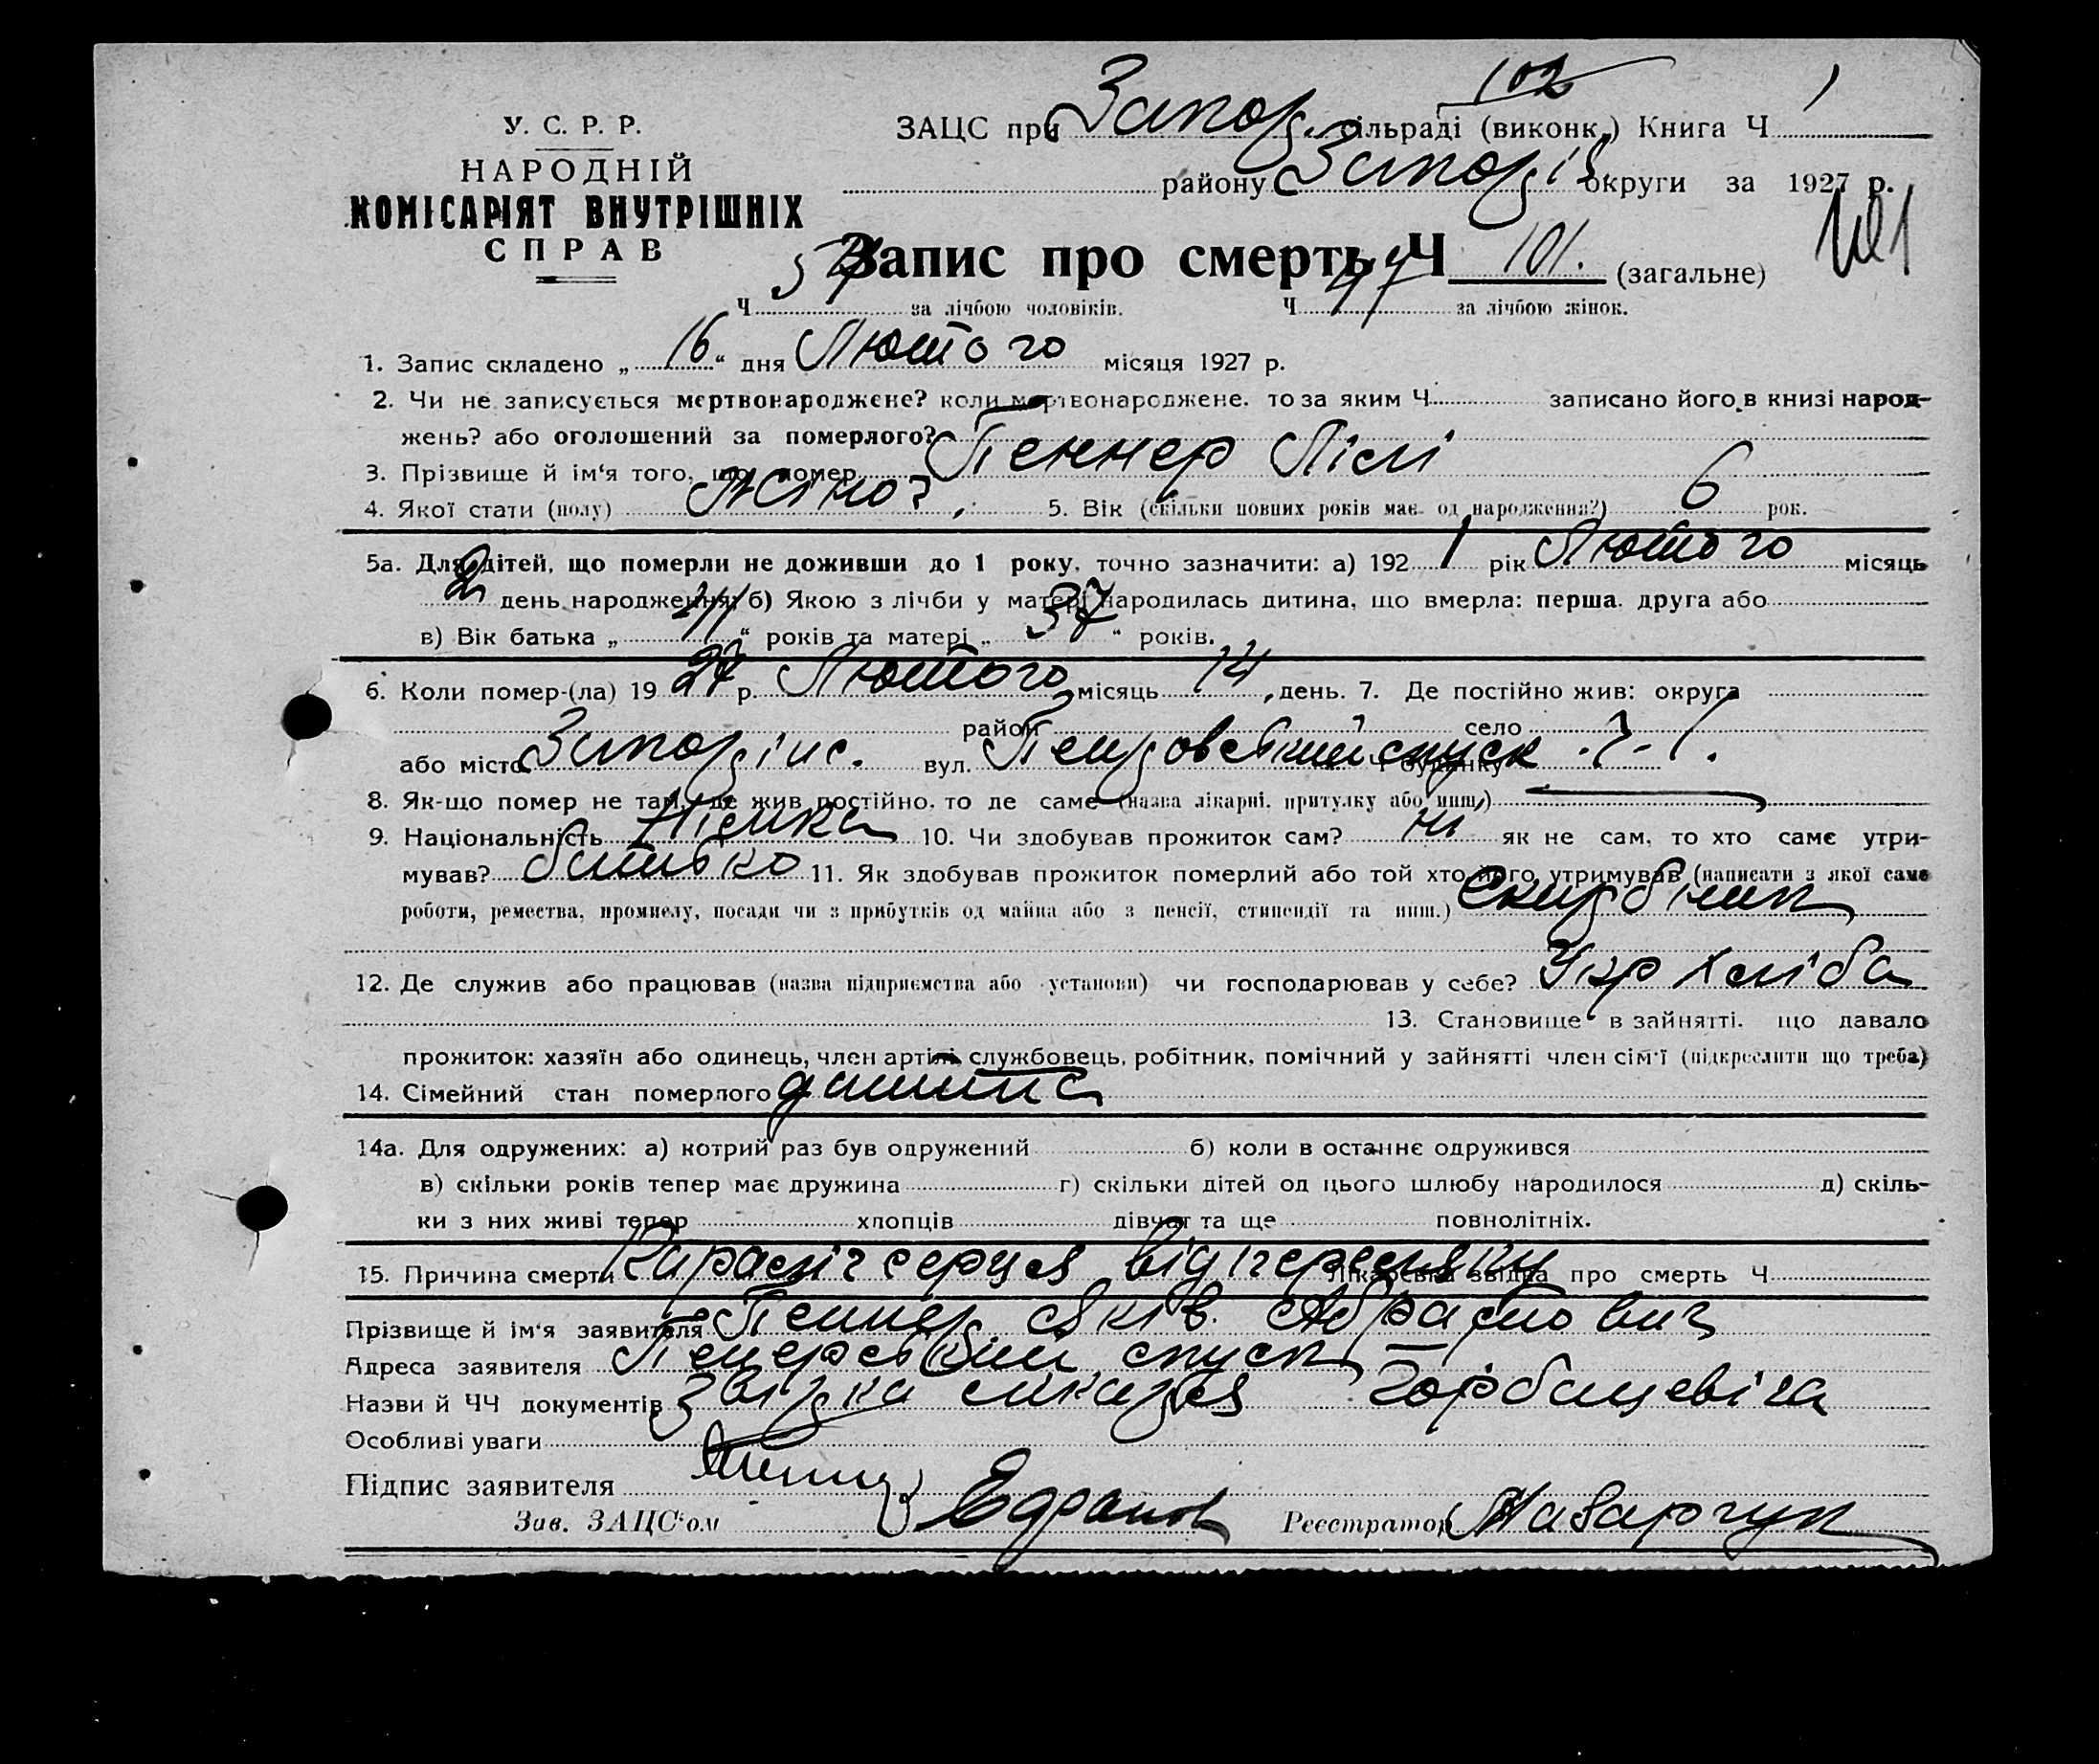 102
У. С. Р. Р.
НАРОДНІЙ
КОМІСАРІЯТ ВНУТРІШНІХ
СПРАВ
ЗАЦС при Запор. сільраді (виконк.) Книга Ч 1
району Запоріз. округи за 1927 р.
101
Запис про смерть Ч 101. (загальне)
Ч 54 за лічбою чоловіків. Ч 47 за лічбою жінок.
1. Запис складено „ 16 “ дня Лютого місяця 1927 р.
2. Чи не записується мертвонароджене? коли мертвонароджене, то за яким Ч записано його в книзі народ-
жень? або оголошений за померлого?
3. Прізвище й ім‘я того, що помер Пеннер Лілі
4. Якої стати (полу) жіно? 5. Вік (скільки повних років має од народження?) 6 рок.
5а. Для дітей, що померли не доживши до 1 року, точно зазначити: а) 192 1 рік Лютого місяць
2 день народження; б) Якою з лічби у матері народилась дитина, що вмерла: перша, друга або
в) Вік батька „ “ років та матері „ 37 “ років.
6. Коли помер-(ла) 19 27 р. Лютого місяць 14, день. 7. Де постійно жив: округа
район село
або місто Запоріжж. вул. спуск Ч будинку
8. Як-що помер не там, де жив постійно, то де саме (назва лікарні, притулку або инш.)
9. Національність Німка 10. Чи здобував прожиток сам? ні як не сам, то хто саме утри-
мував? батько 11. Як здобував прожиток померлий або той хто його утримував (написати з якої саме
роботи, ремества, промислу, посади чи з прибутків од майна або з пенсії, стипендії та инш.)
12. Де служив або працював (назва підприємства або установи) чи господарював у себе? Укр хліба
13. Становище в зайнятті, що давало
прожиток: хазяїн або одинець, член артілі, службовець, робітник, помічний у зайнятті член сім‘ї (підкреслити що треба)
14. Сімейний стан померлого дитина
14а. Для одружених: а) котрий раз був одружений б) коли в останнє одружився
в) скільки років тепер має дружина г) скільки дітей од цього шлюбу народилося д) скіль-
ки з них живі тепер хлопців дівчат та ще повнолітніх.
15. Причина смерти Параліч серця від Лікарська звідка про смерть Ч
Прізвище й ім‘я заявителя Пеннер Яків. Абрамович
Адреса заявителя спуск
Назви й ЧЧ документів звідка лікаря Горбацевіча
Особливі уваги
Підпис заявителя
Зав. ЗАЦС‘ом Реєстратор